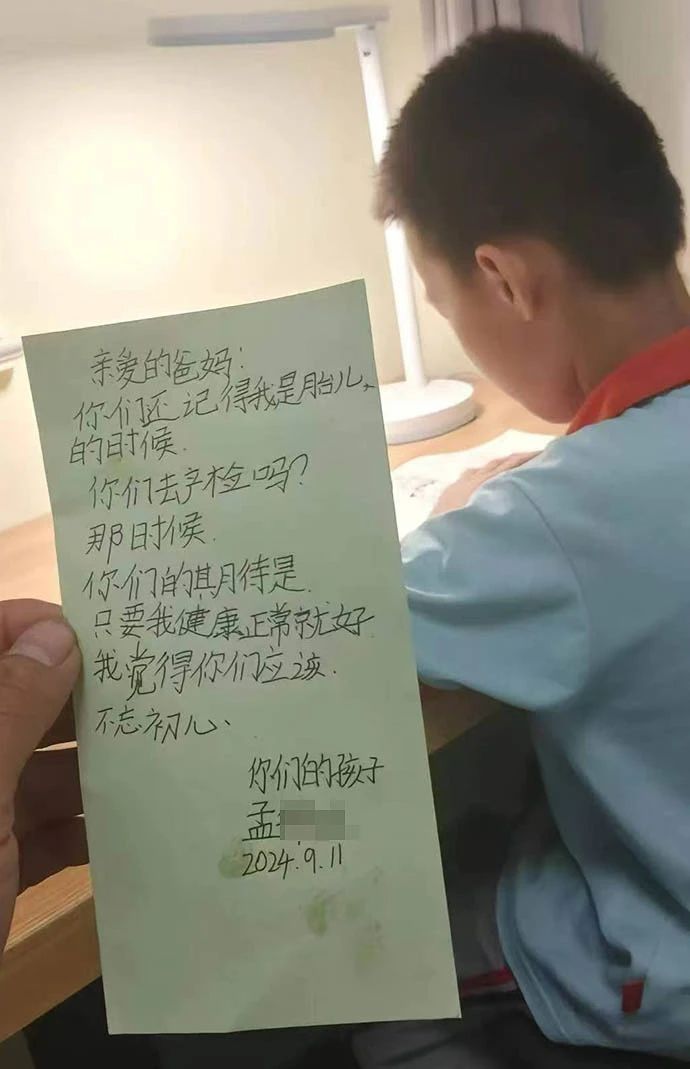 亲爱的爸妈：
你们还记得我是胎儿、
的时候.
你们去产检吗？
那时候.
你们的期待是.
只要我健康正常就好.
我觉得你们应该.
不忘初心、
你们的孩子
孟
2024.9.11